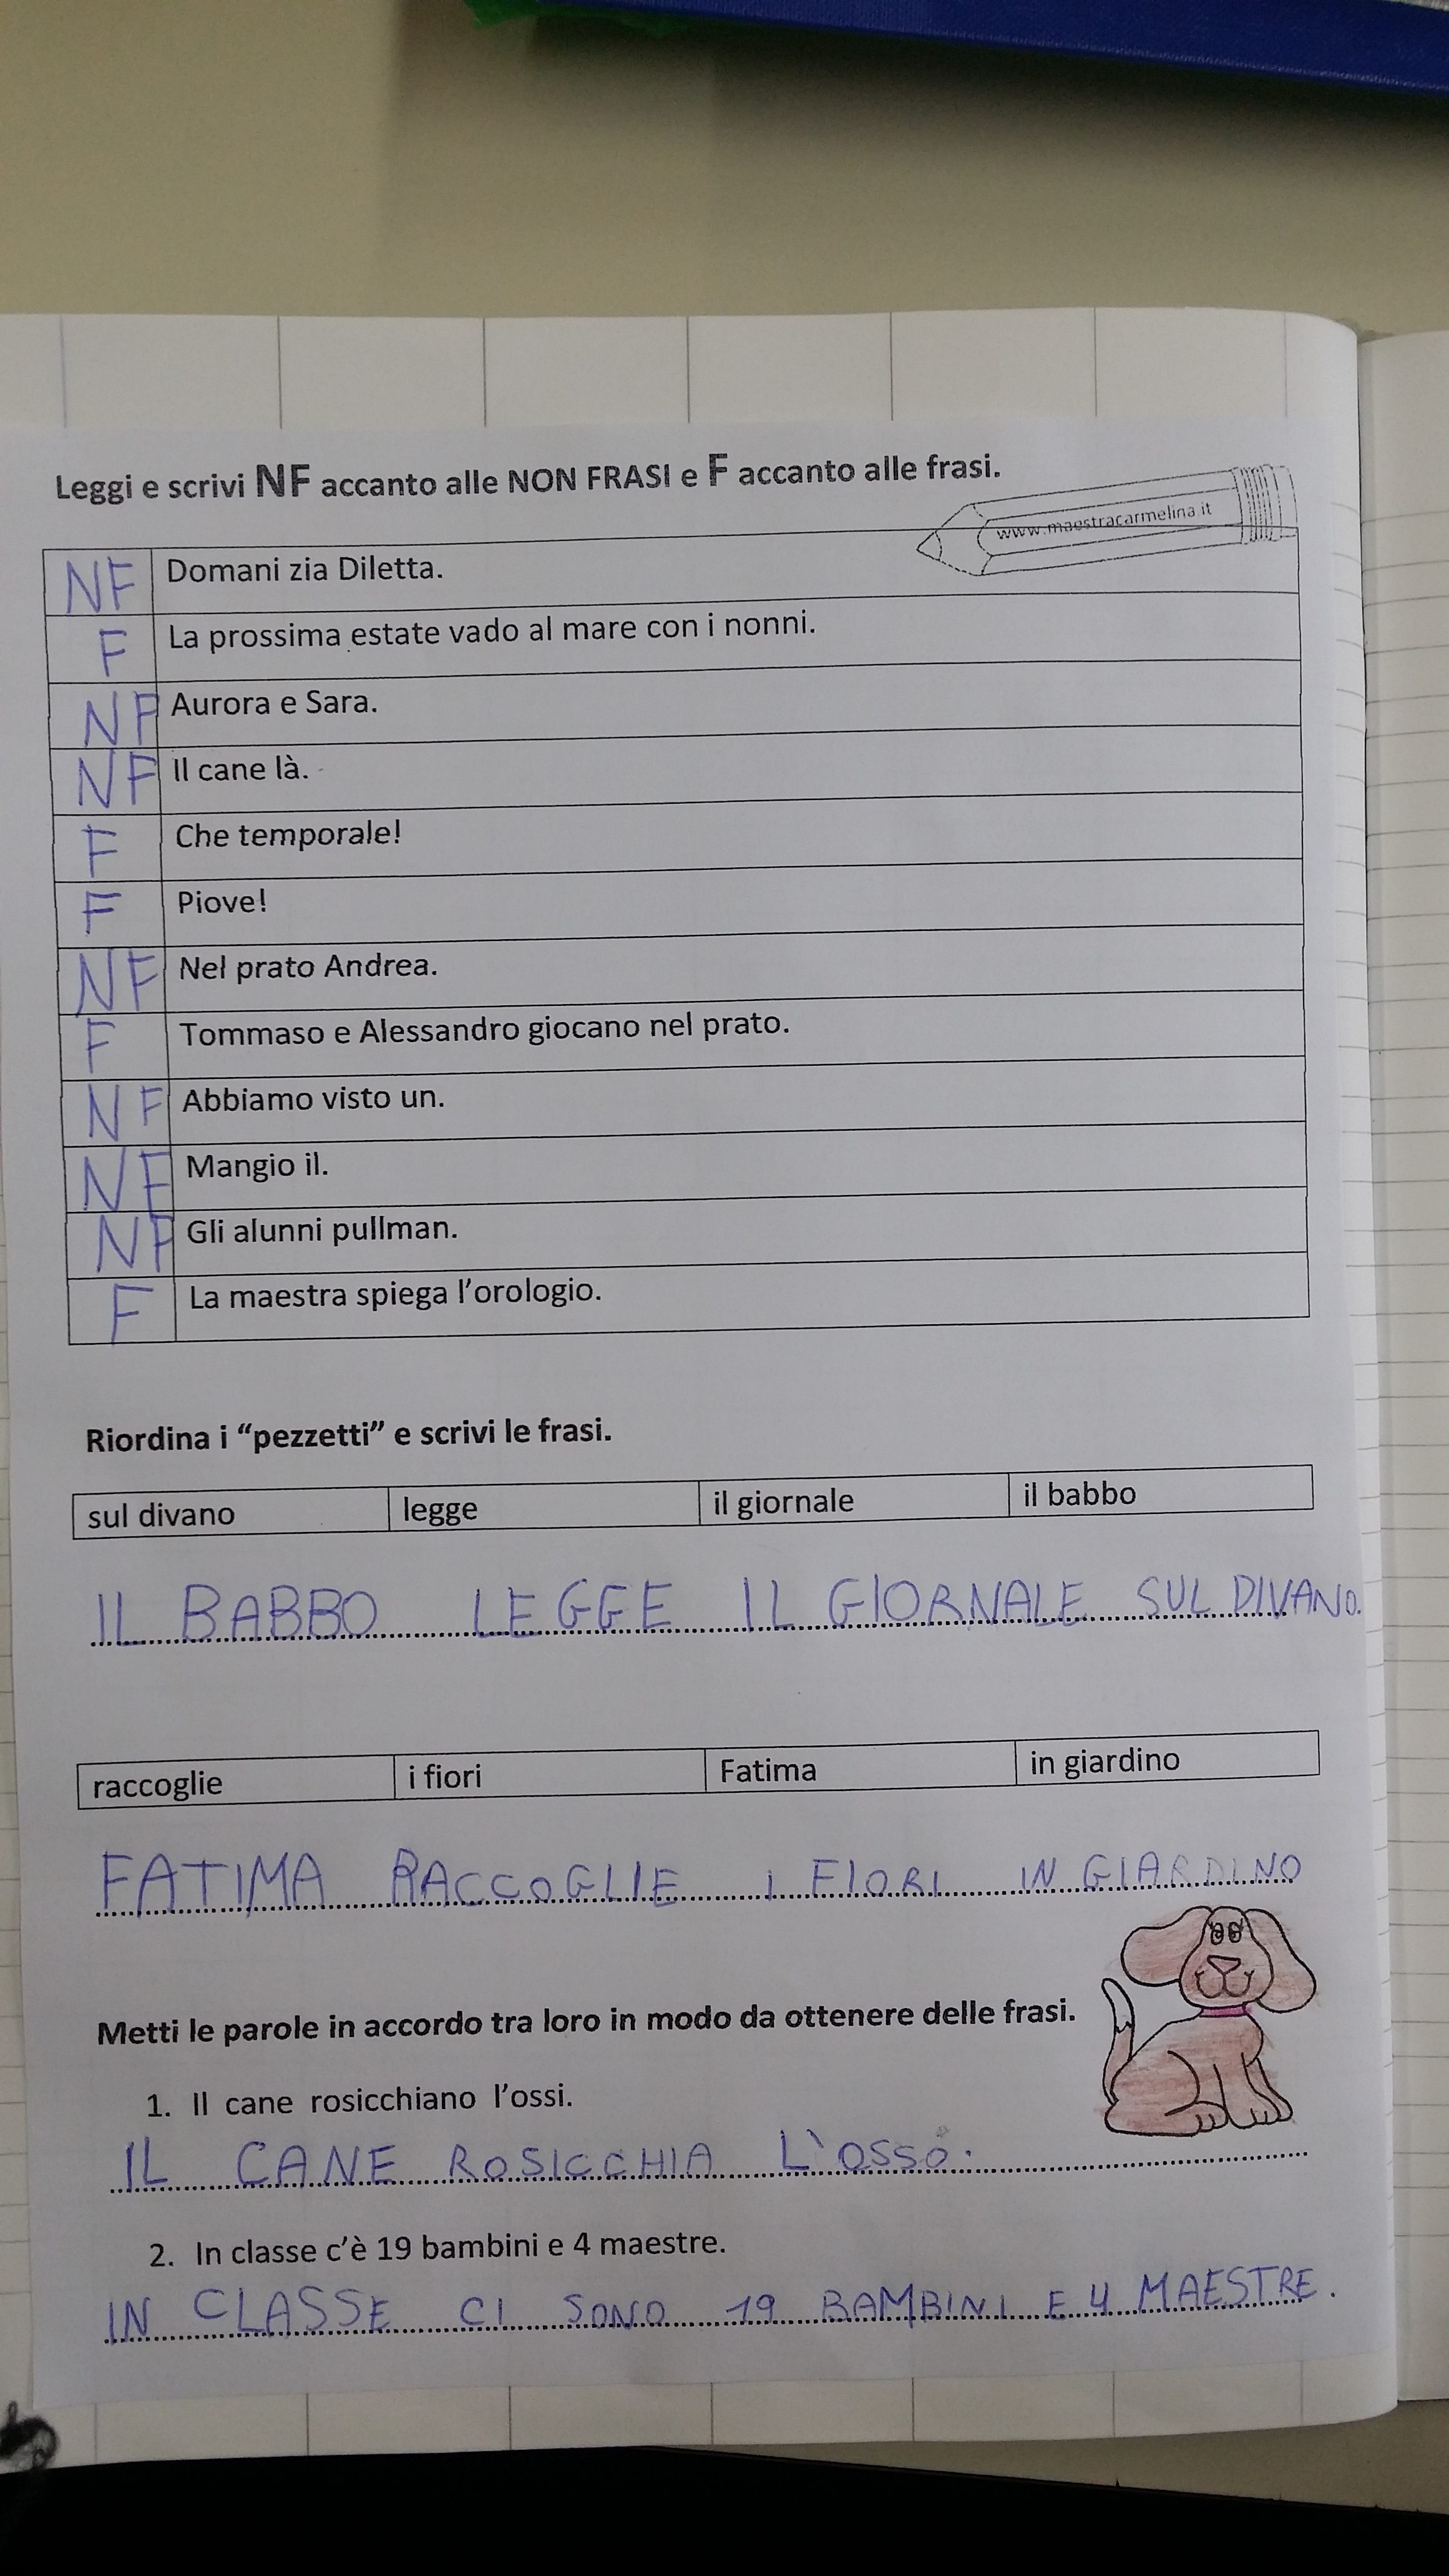 Leggi e scrivi NF accanto alle NON FRASI e F accanto alle frasi.
www.maestracarmelina.it
NF Domani zia Diletta.
F La prossima estate vado al mare con i nonni.
NF Aurora e Sara.
NF Il cane là.
F Che temporale!
F Piove!
NF Nel prato Andrea.
F Tommaso e Alessandro giocano nel prato.
NF Abbiamo visto un.
NF Mangio il.
NF Gli alunni pullman.
F La maestra spiega l'orologio.
Riordina i “pezzetti” e scrivi le frasi.
sul divano legge il giornale il babbo
IL BABBO LEGGE IL GIORNALE SUL DIVANO.
raccoglie i fiori Fatima in giardino
FATIMA RACCOGLIE I FIORI IN GIARDINO
Metti le parole in accordo tra loro in modo da ottenere delle frasi.
1. Il cane rosicchiano l'ossi.
IL CANE ROSICCHIA L'OSSO.
2. In classe c'è 19 bambini e 4 maestre.
IN CLASSE CI SONO 19 BAMBINI E 4 MAESTRE.